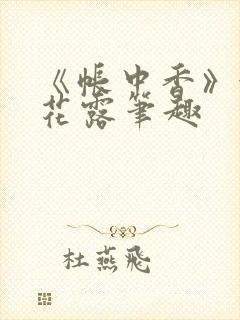 《帐中香》
花露笔趣
杜燕飛